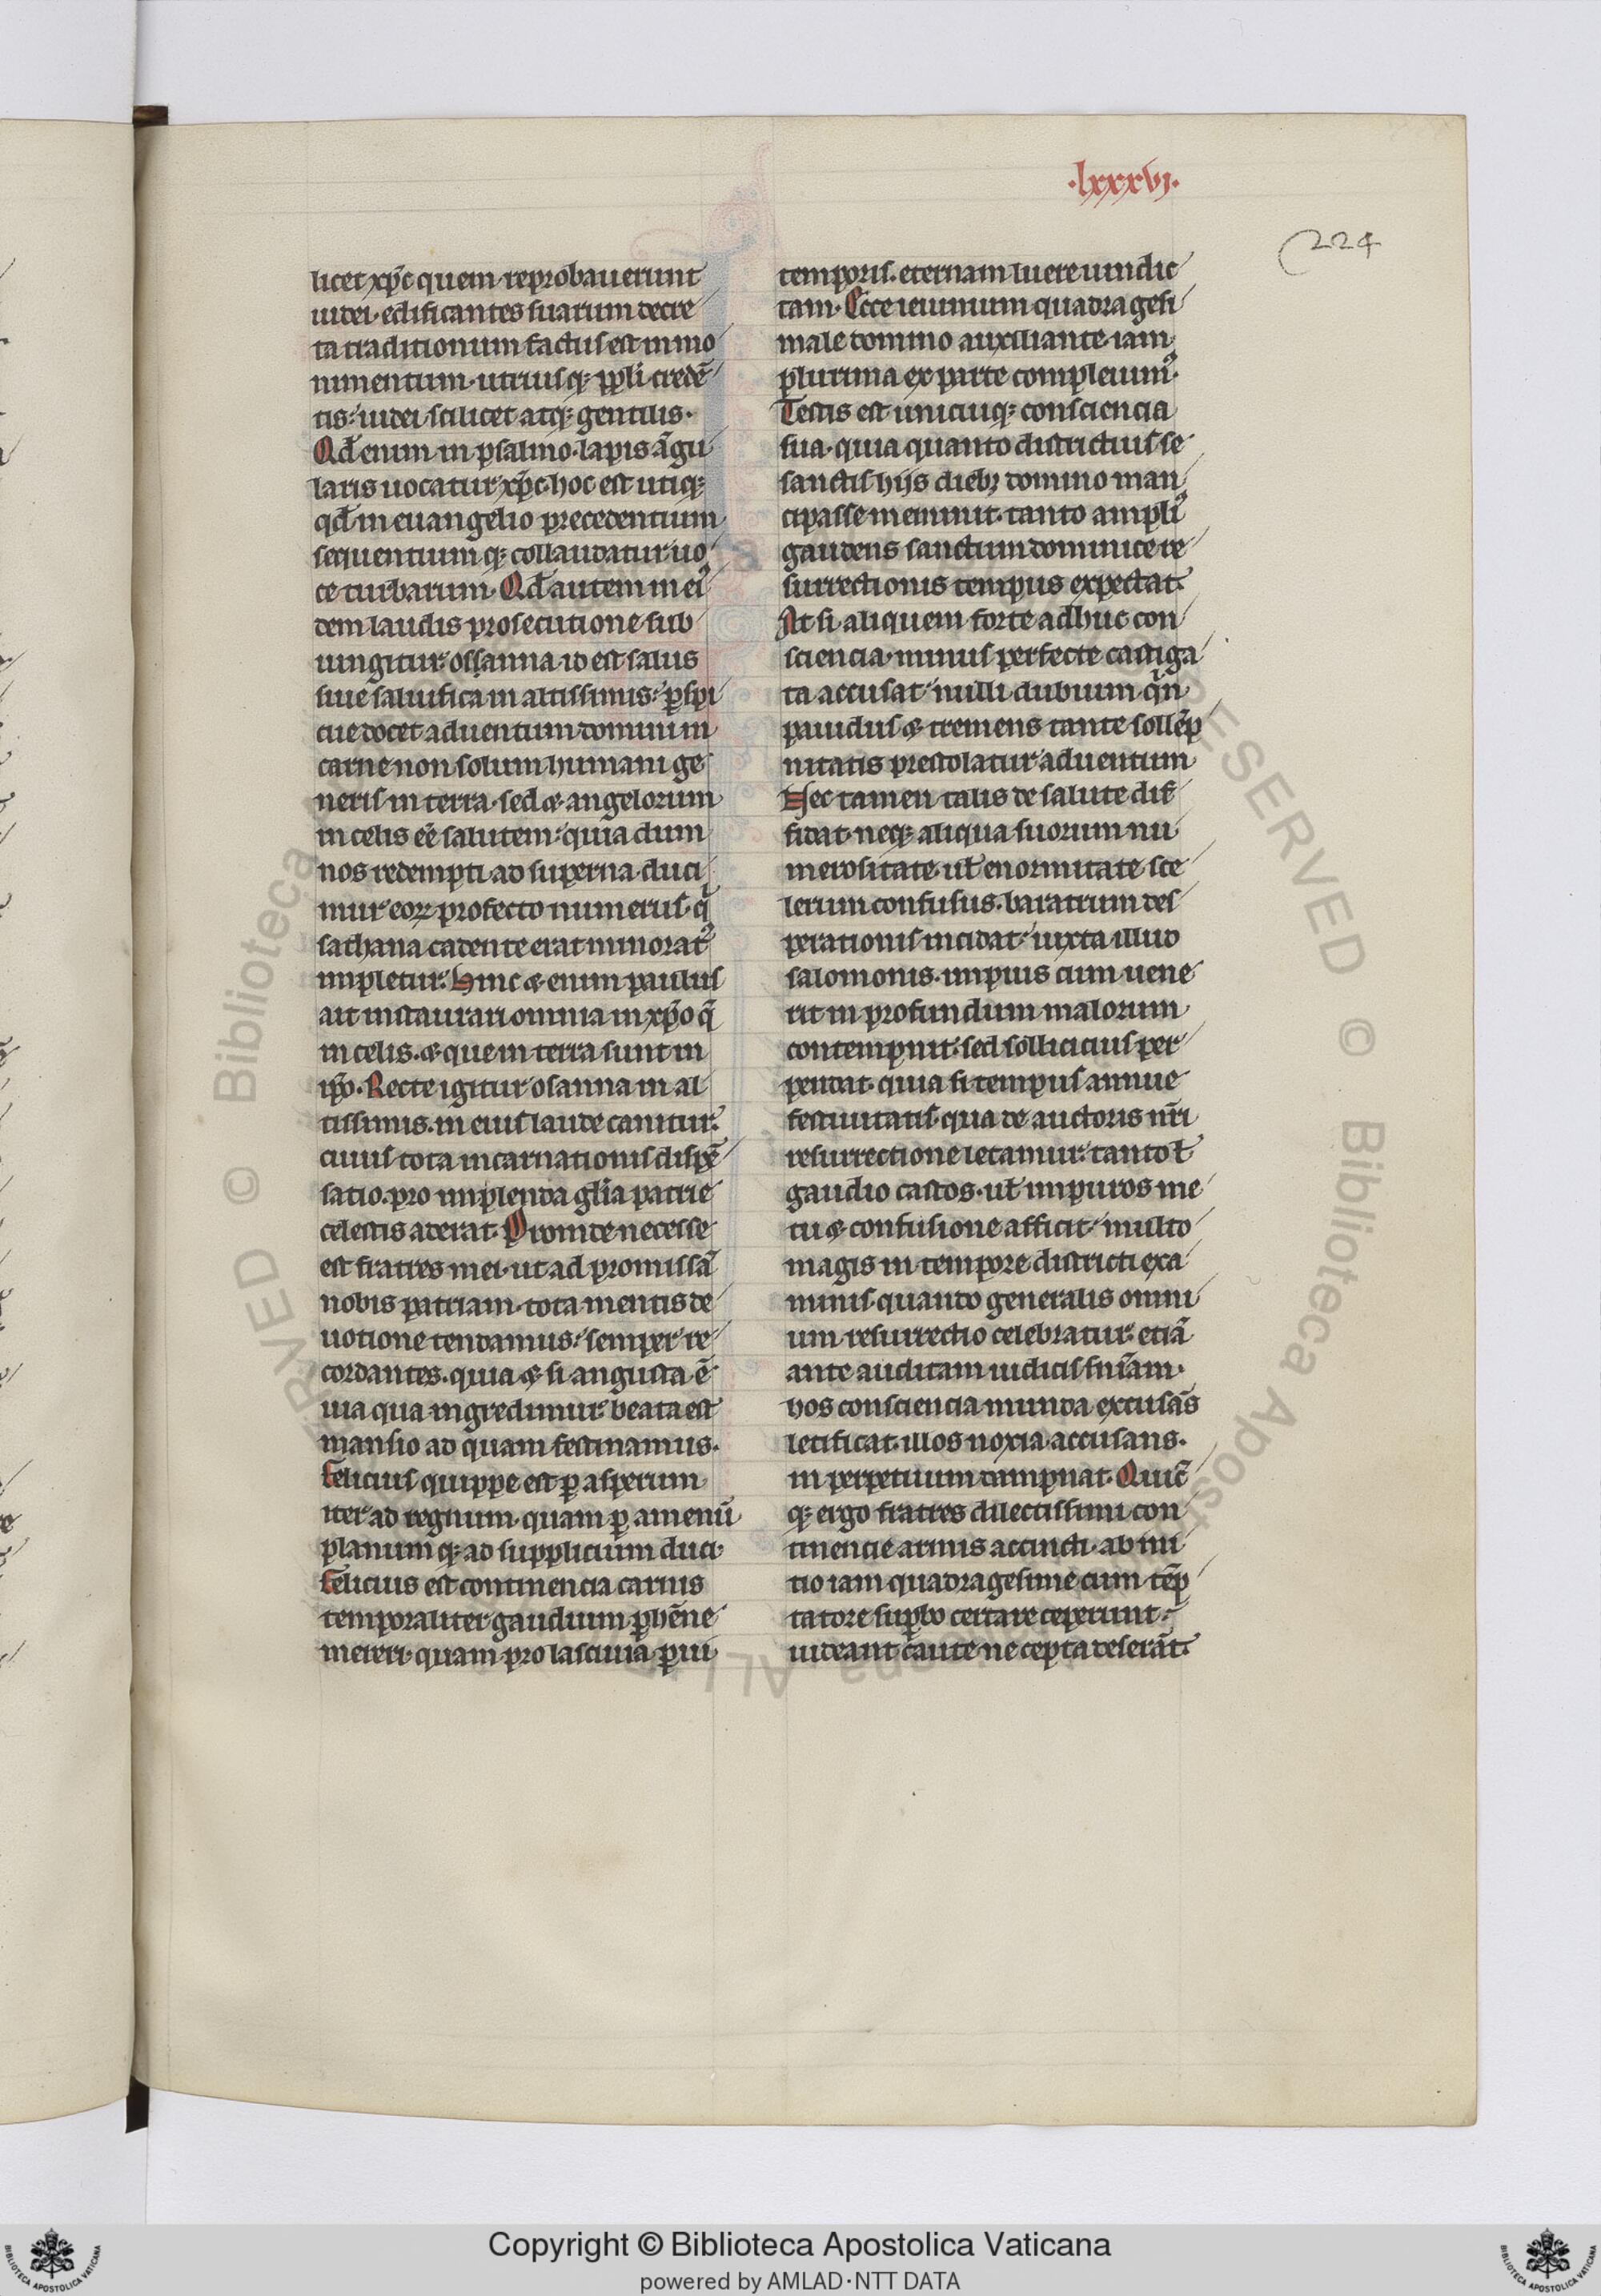 ·lxxxvi·
224
licet xp̄c quem reprobauerunt
iudei· edificantes suarum decre
ta traditionum factus est in mo
nimentum· utriusq; ppl̄i credē
tis: iudei scilicet atq; gentilis·
Qd̄ enim in psalmo· lapis āgu
laris uocatur xp̄c· hoc est utiq;
qd̄ in euangelio precedentium
sequentium q; collaudatur uo
ce turbarum· Qd̄ autem in eiꝰ
dem laudis prosecutione sub
iungitur· ossanna id est salus
siue saluifica in altissimis: ꝑspi
cue docet aduentum domini in
carne non solum humani ge
neris in terra· sed ⁊ angelorum
in celis eē salutem: quia dum
nos redempti ad superna duci
mur eoꝝ profecto numerus· q̇
sathana cadente erat minoratꝰ
impletur. Hinc ⁊ enim paulus
ait instaurari omnia in xp̄o q̄
in celis· ⁊ que in terra sunt in
ip̄o· Recte igitur osanna in al
tissimis· in eius laude canitur.
cuius tota incarnationis dispē
satio· pro implenda gl̄ia patrie
celestis aderat· Proinde necesse
est fratres mei· ut ad promissā
nobis patriam· tota mentis de
uotione tendamus: semper re
cordantes· quia ⁊ si angusta ē
uia qua ingredimur beata est
mansio ad quam festinamus·
Felicius quippe est ꝑ asperum
iter ad regnum· quam ꝑ amenū
planum q; ad supplicium duci·
Felicius est continencia carnis
temporaliter gaudium ꝑhēne
mereri· quam pro lasciuia ꝑ ui
temporis· eternam luere uindic
tam· Ecce ieiunium quadragesi
male domino auxiliante iam
plurima ex parte compleuimꝰ·
Testis est unicuiq; consciencia
sua· quia quanto districtius se
sanctis hijs dieb; domino man
cipasse meminit· tanto ampliꝰ
gaudens sanctum dominice re
surrectionis tempus expectat·
At si aliquem forte adhuc con
sciencia minus perfecte castiga
ta accusat: nulli dubium q̇n
pauidus ⁊ tremens tante sollēp
nitatis prestolatur aduentum
Nec tamen talis de salute dif
fidat· neq; aliqua suorum nu
merositate ut̄ enormitate sce
lerum confusus· baratrum des
perationis incidat: iuxta illud
salomonis· impius cum uene
rit in profundum malorum
contempnit· sed sollicicius per
pendat quia si tempus annue
festiuitatis· qua de auctoris nr̄i
resurrectione letamur: tanto ł
gaudio castos· ut̄ impuros me
tu ⁊ confusione afficit: multo
magis in tempore districti exa
minis quando generalis omni
um resurrectio celebratur: etiā
ante auditam iudicis sn̄iam·
hos consciencia munda excusās
letificat· illos noxia accusans·
in perpetuum dampnat· Quic̄
q; ergo fratres dilectissimi con
tinencie armis accincti· ab ini
tio iam quadragesime cum tēp
tatore suꝑbo certare ceperunt·
uideant caute ne cepta deserāt·
Copyright © Biblioteca Apostolica Vaticana
powered by AMLAD·NTT DATA